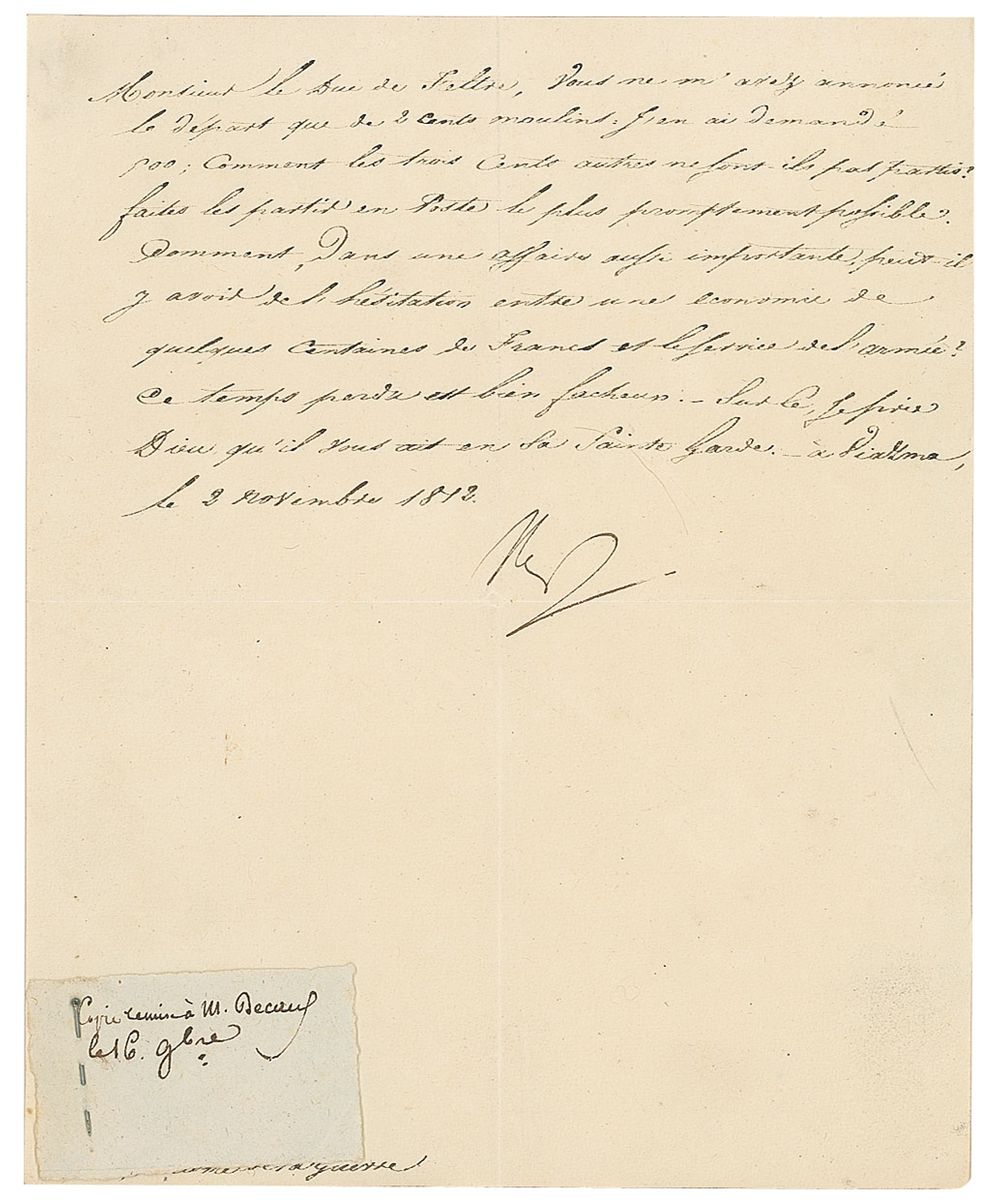 Monsieur le Duc de Feltre, Vous ne m'avez annoncé
le départ que de 2 cents moulins: J'en ai demandé
500; Comment les trois Cents autres ne sont-ils pas partis?
faites les partir en Poste le plus promptement possible.
Comment, Dans une affaire aussi importante, peut-il
y avoir de l'hésitation entre une économie de
quelques Centaines de Francs et le service de l'armée?
Ce temps perdu est bien facheux. - Sur ce, Je prie
Dieu qu'il Vous ait en Sa Sainte Garde. - à Viazma,
le 2 Novembre 1812.
Np
Copie remise à M. Decaux
le 16. 9bre
guerre